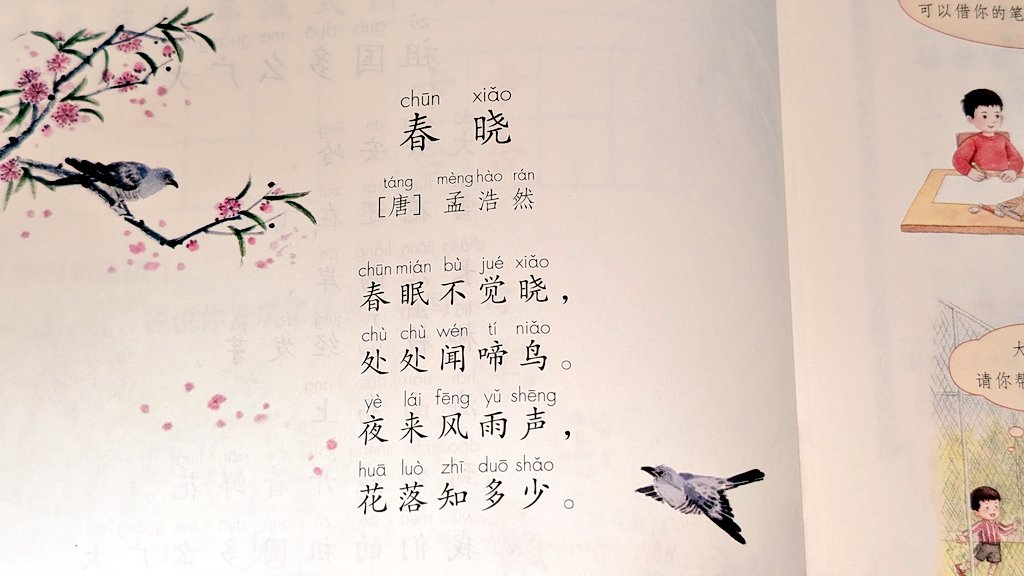 chūn xiǎo
春 晓
táng mèng hào rán
[唐] 孟 浩 然
chūn mián bù jué xiǎo
春 眠 不 觉 晓，
chù chù wén tí niǎo
处 处 闻 啼 鸟。
yè lái fēng yǔ shēng
夜 来 风 雨 声，
huā luò zhī duō shǎo
花 落 知 多 少。
可以借你的笔
大
请你帮